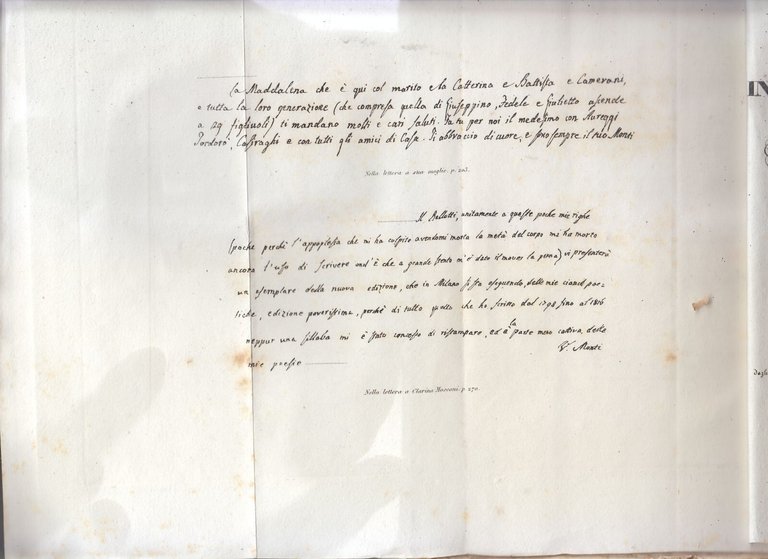 La Maddalena che è qui col marito e la Catterina e Battista e Camerani,
e tutta la loro generazione (che compresa quella di Giuseppino, Fedele e Giulietto ascende
a 29 figliuoli) ti mandano molti e cari saluti. Fa tu per noi il medesimo con Aureggi
Teodoro, Casiraghi e con tutti gli amici di Casa. Ti abbraccio di cuore, e sono sempre il tuo Monti
Nella lettera a sua moglie. p. 203.
Il Bellotti, unitamente a queste poche mie righe
(poche perchè l'appoplessia che mi ha colpito avendomi morta la metà del corpo mi ha morto
ancora l'uso di scrivere ond'è che a grande stento m'è dato il mover la penna) vi presenterà
un esemplare della nuova edizione, che in Milano si sta eseguendo, delle mie ciance poe-
tiche, edizione poverissima, perchè di tutto quello che ho scritto dal 1798 fino al 1816
neppur una sillaba mi è stato concesso di ristampare, ed è la parte meno cattiva delle
mie poesie
V. Monti
Nella lettera a Clarina Mosconi. p. 270.
IN